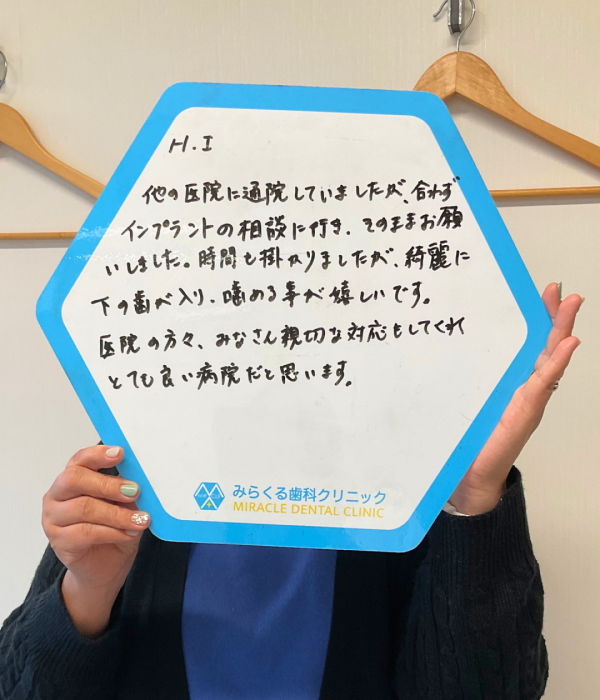 H.I
他の医院に通院していましたが、合わず
インプラントの相談に行き、そのままお願
いしました。時間も掛かりましたが、綺麗に
下の歯が入り、噛める事が嬉しいです。
医院の方々、みなさん親切な対応もしてくれ
とても良い病院だと思います。
みらくる歯科クリニック
MIRACLE DENTAL CLINIC